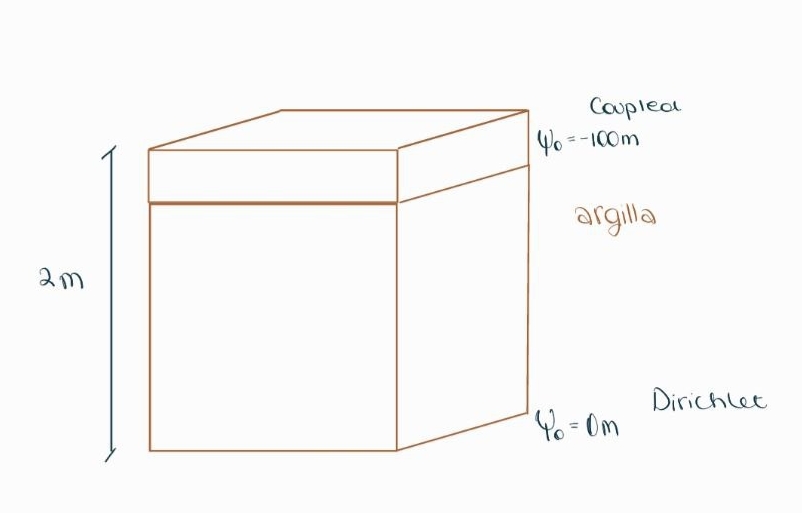 Coupled
ψ₀ = -100m
argilla
2m
Dirichlet
ψ₀ = 0m